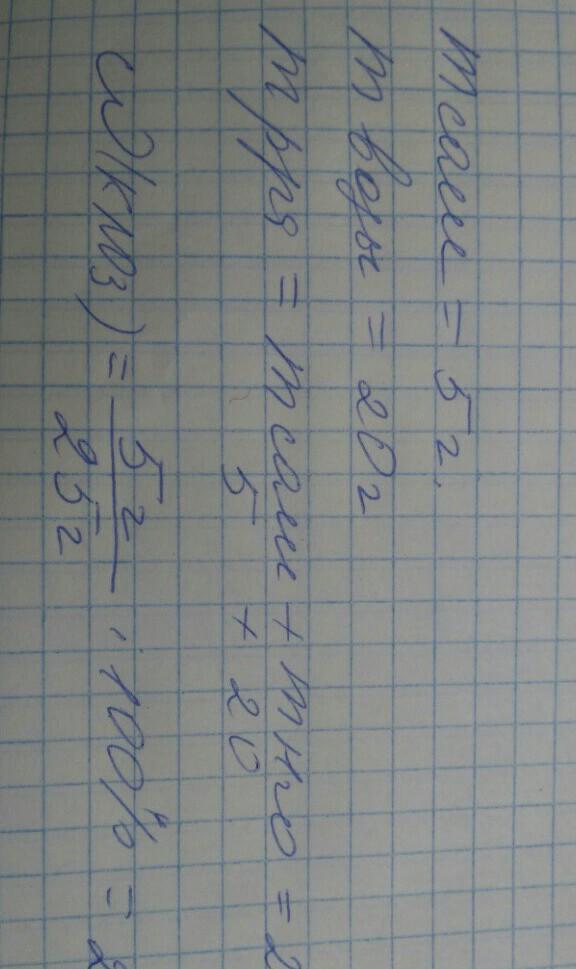 m соли = 5 г.
m воды = 20 г
m р-ра = m соли + m H2O = 2
5 + 20
ω(KNO3) = 5 г / 25 г · 100% = 2